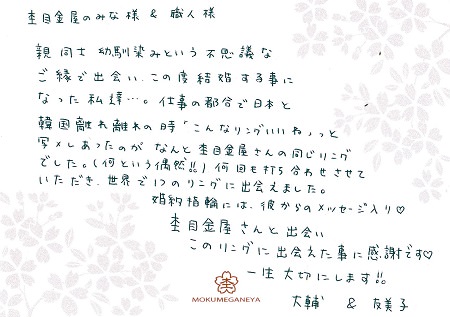 杢目金屋のみな様 & 職人様
親同士幼馴染みという不思議な
ご縁で出会い、この度結婚する事に
なった私達…。仕事の都合で日本と
韓国離れ離れの時「こんなリングいいね」っと
写メしあったのが なんと杢目金屋さんの同じリング
でした。(何という偶然!!) 何回も打ち合わせさせて
いただき、世界で1つのリングに出会えました。
婚約指輪には、彼からのメッセージ入り♡
杢目金屋さんと出会い
このリングに出会えた事に感謝です♡
一生大切にします!!
MOKUMEGANEYA
大輔 & 友美子